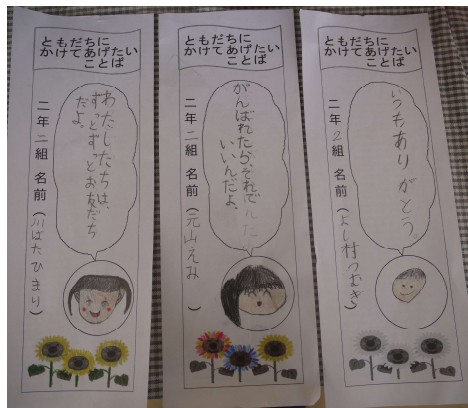 ともだちに
かけてあげたい
ことば
わたしたちは、
ずっとずっとお友だち
だよ。
二年二組 名前（川ばたひまり）
ともだちに
かけてあげたい
ことば
がんばれたら、それで
いいんだよ。
二年二組 名前（元山えみ）
ともだちに
かけてあげたい
ことば
いつもありがとう。
二年2組 名前（よし村つむぎ）